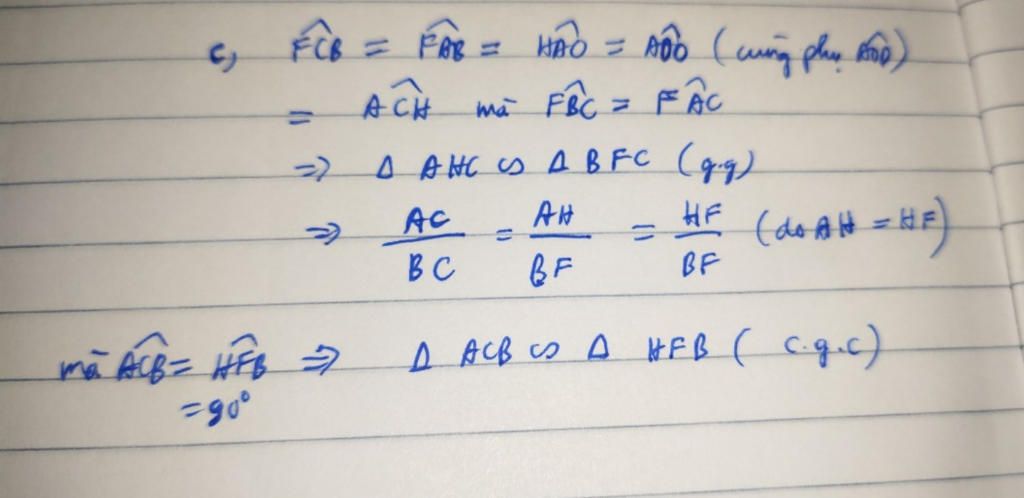 c, FĈB = FÂB = HÂO = AD̂O (cùng phụ AÔD)
= AĈH mà FB̂C = FÂC
=> Δ AHC ∽ Δ BFC (g.g)
=> AC/BC = AH/BF = HF/BF (do AH = HF)
mà AĈB = HF̂B => Δ ACB ∽ Δ HFB ( c.g.c)
= 90°